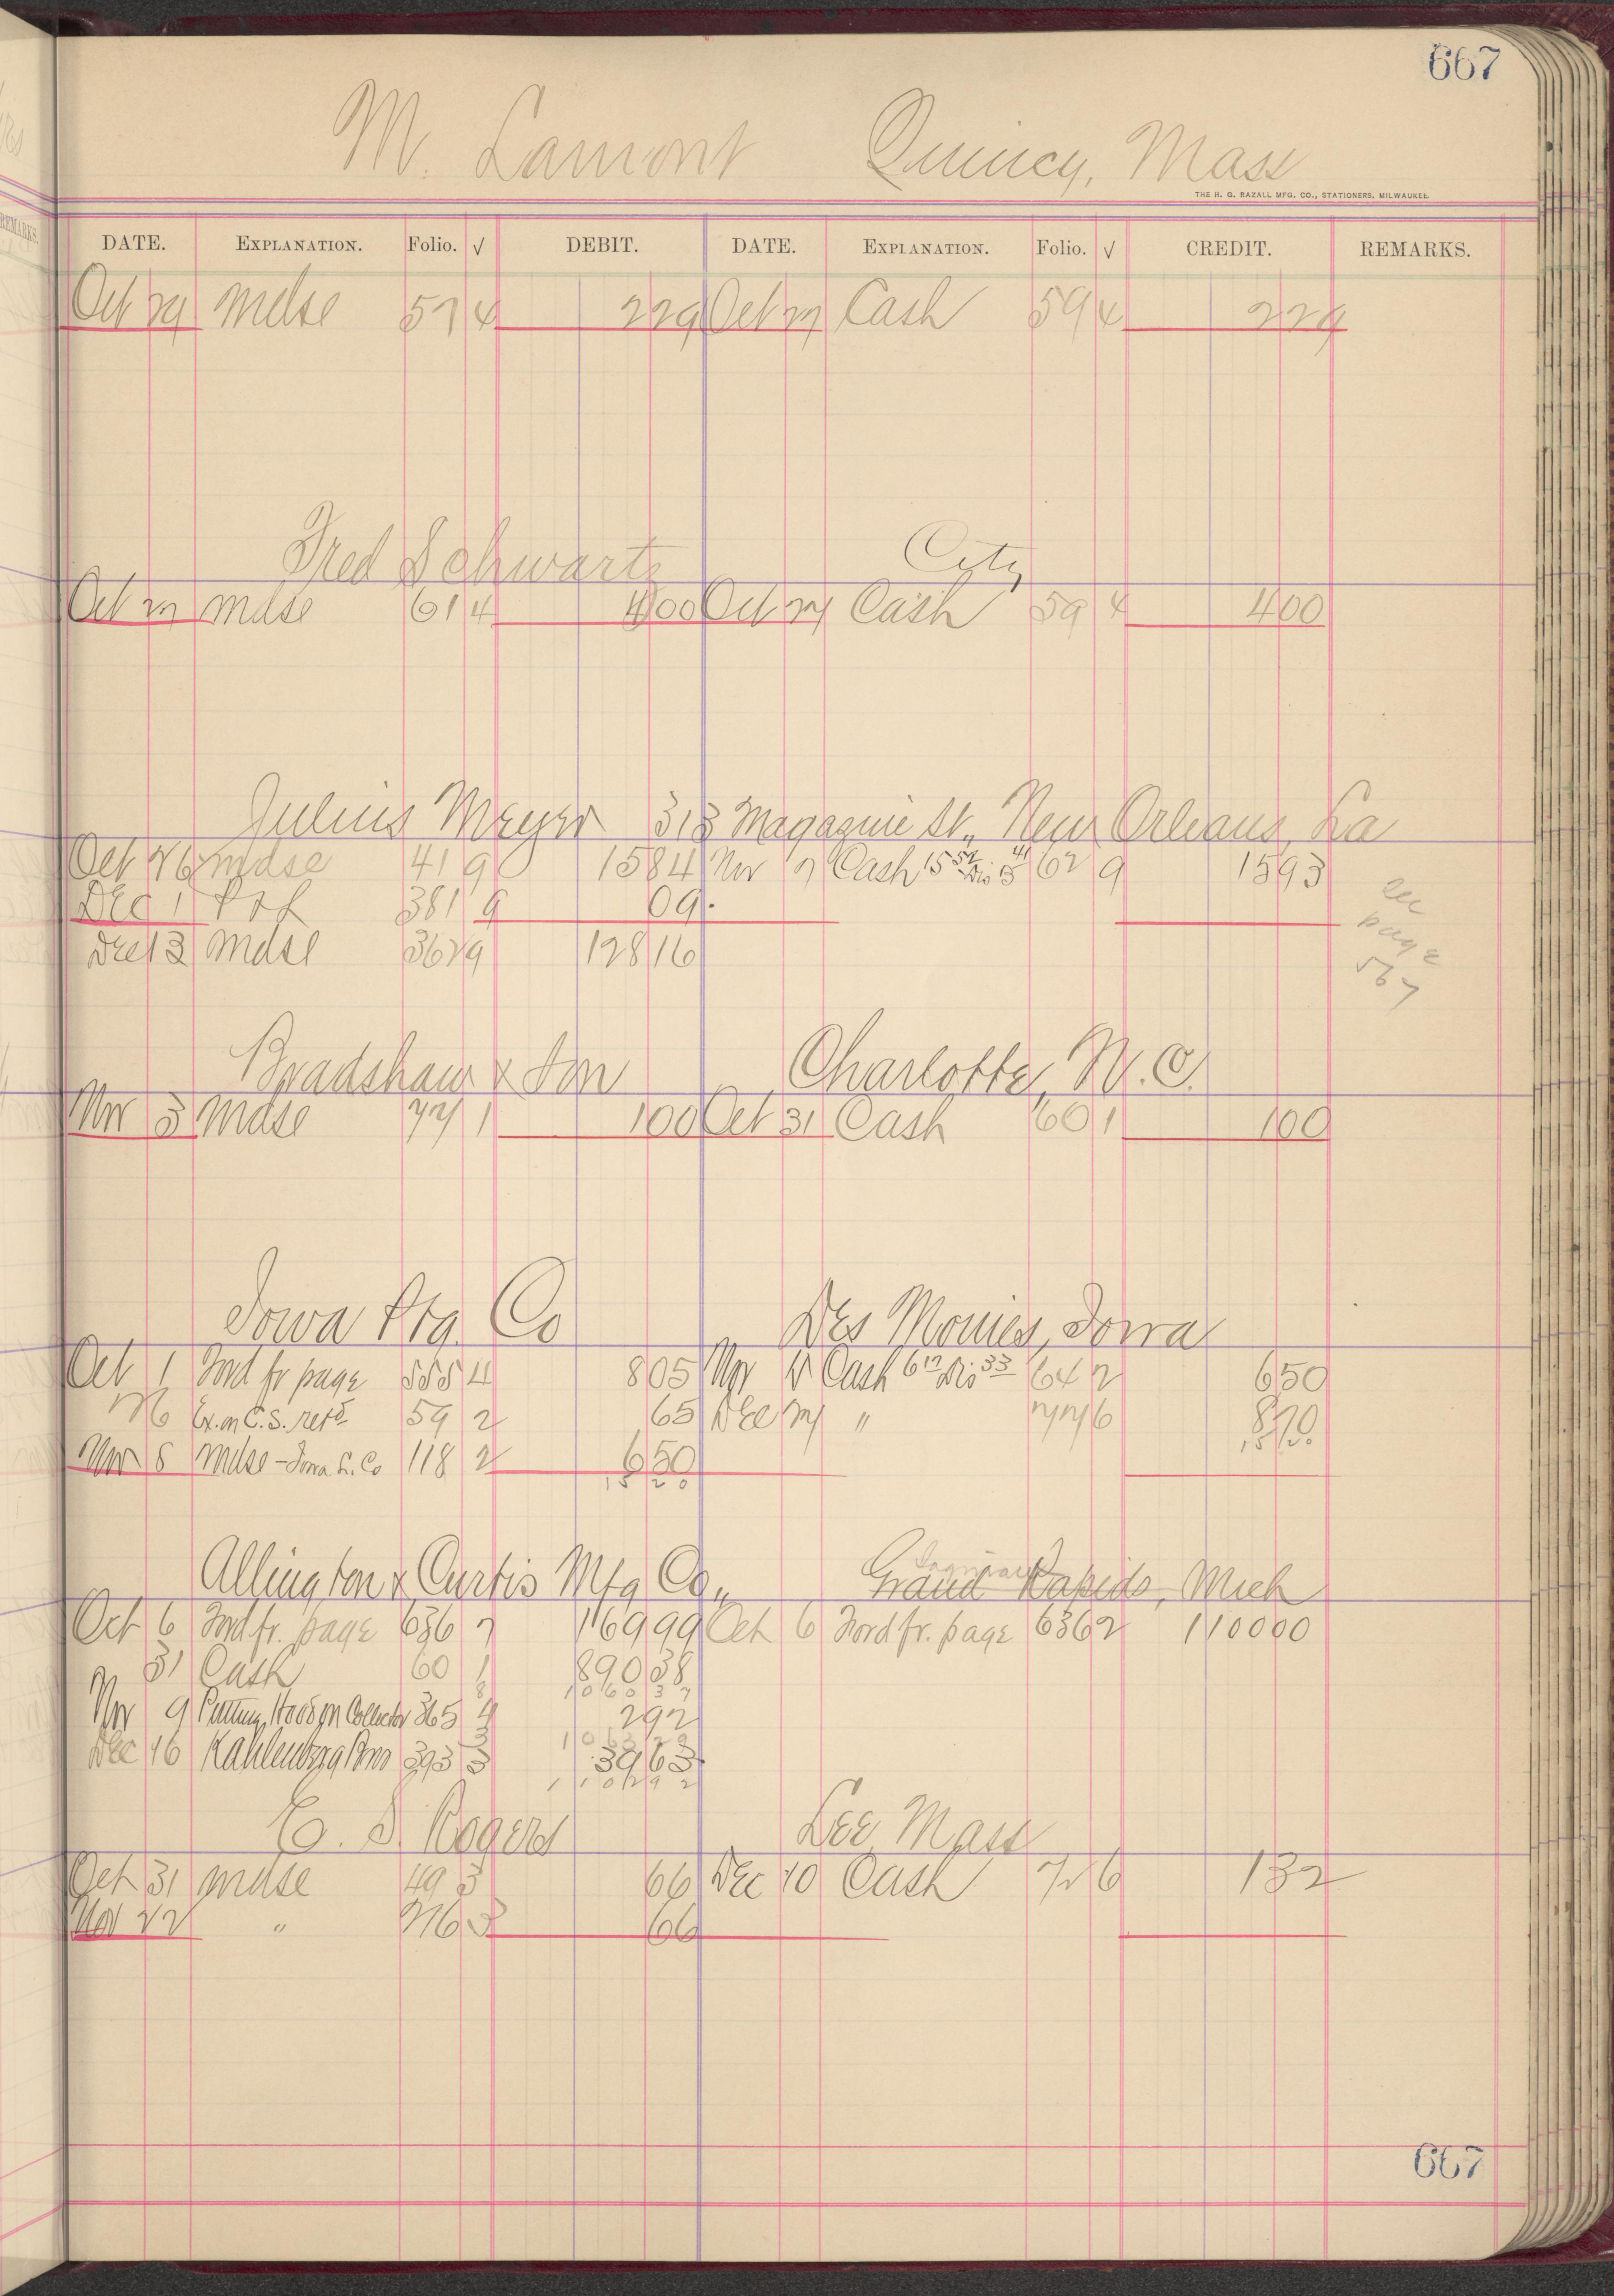 667
M. Lamont Quincy, Mass
THE H. G. RAZALL MFG. CO., STATIONERS, MILWAUKEE
DATE. EXPLANATION. Folio. √ DEBIT. DATE. EXPLANATION. Folio. √ CREDIT. REMARKS.
Oct 29 Mdse 57 4 229 Oct 27 Cash 59 4 229
Fred Schwartz City
Oct 27 Mdse 61 4 400 Oct 27 Cash 59 4 400
Julius Meyer 313 Magazine St., New Orleans, La
Oct 26 Mdse 41 9 1584 Nov 7 Cash 15 52 Dis 41 62 9 1593
Dec 1 P & L 381 9 09
see page 567
Dec 13 Mdse 362 9 128 16
Bradshaw & Son Charlotte, N. C.
Nov 3 Mdse 77 1 100 Oct 31 Cash 60 1 100
Iowa Ptg. Co Des Moines, Iowa
Oct 1 Ford fr page 555 4 805 Nov Cash 6 17 Dis 33 64 2 650
26 Ex. on C.S. retd 59 2 65 Dec 27 " 77 6 870
1520
Nov 8 Mdse - Iowa L. Co 118 2 650
1520
Allington & Curtis Mfg Co., Grand Rapids, Mich
Saginaw
Oct 6 Ford fr. page 636 7 169 99 Oct 6 Ford fr. page 636 2 1100 00
31 Cash 60 1 890 38
1060 37
Nov 9 Hood on Collector 365 4 2 92
1063 29
Dec 16 Kahlenberg Bros 393 3 39 63
1102 92
C. S. Rogers Lee, Mass
Oct 31 Mdse 49 3 66 Dec 10 Cash 72 6 132
Nov 22 " 216 3 66
667